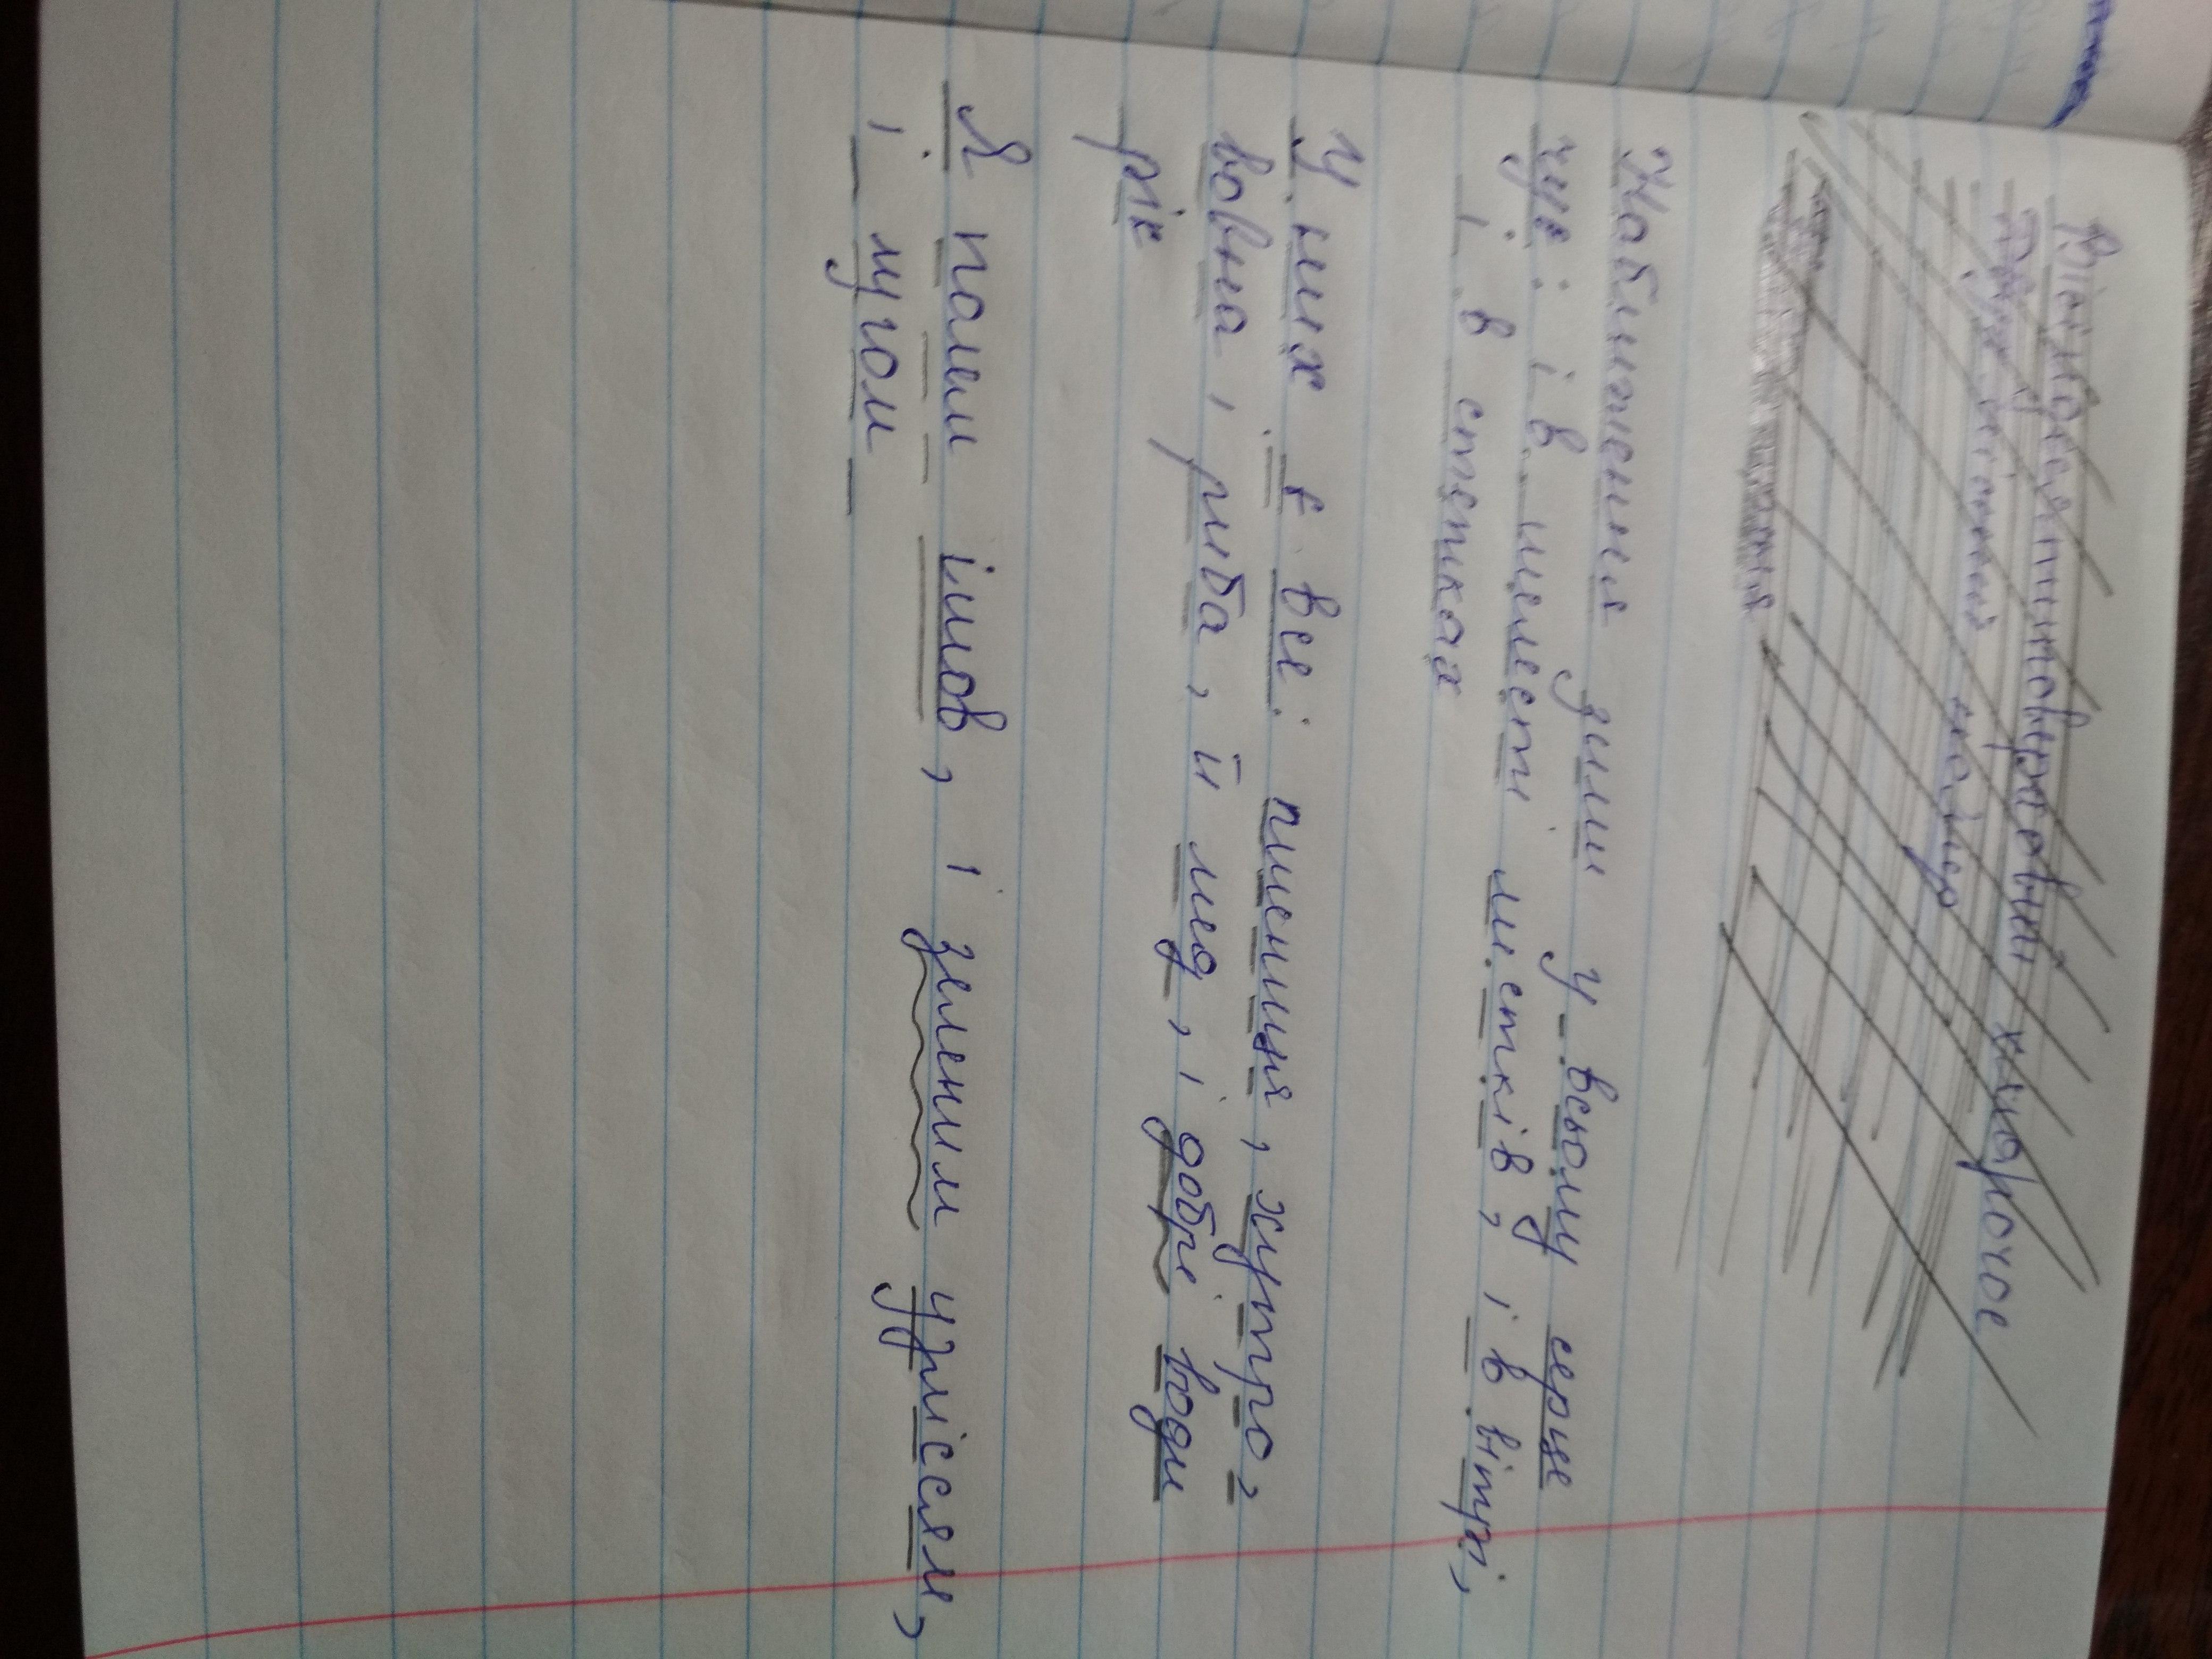 Наближення зими у всьому серце
чує: і в шелесті листків, і в вітрі,
і в стежках
У них є все: пшениця, хутро,
вовна, риба, й мед, і добрі води
рік
Я полем ішов, і зеленим узліссям,
і лугом